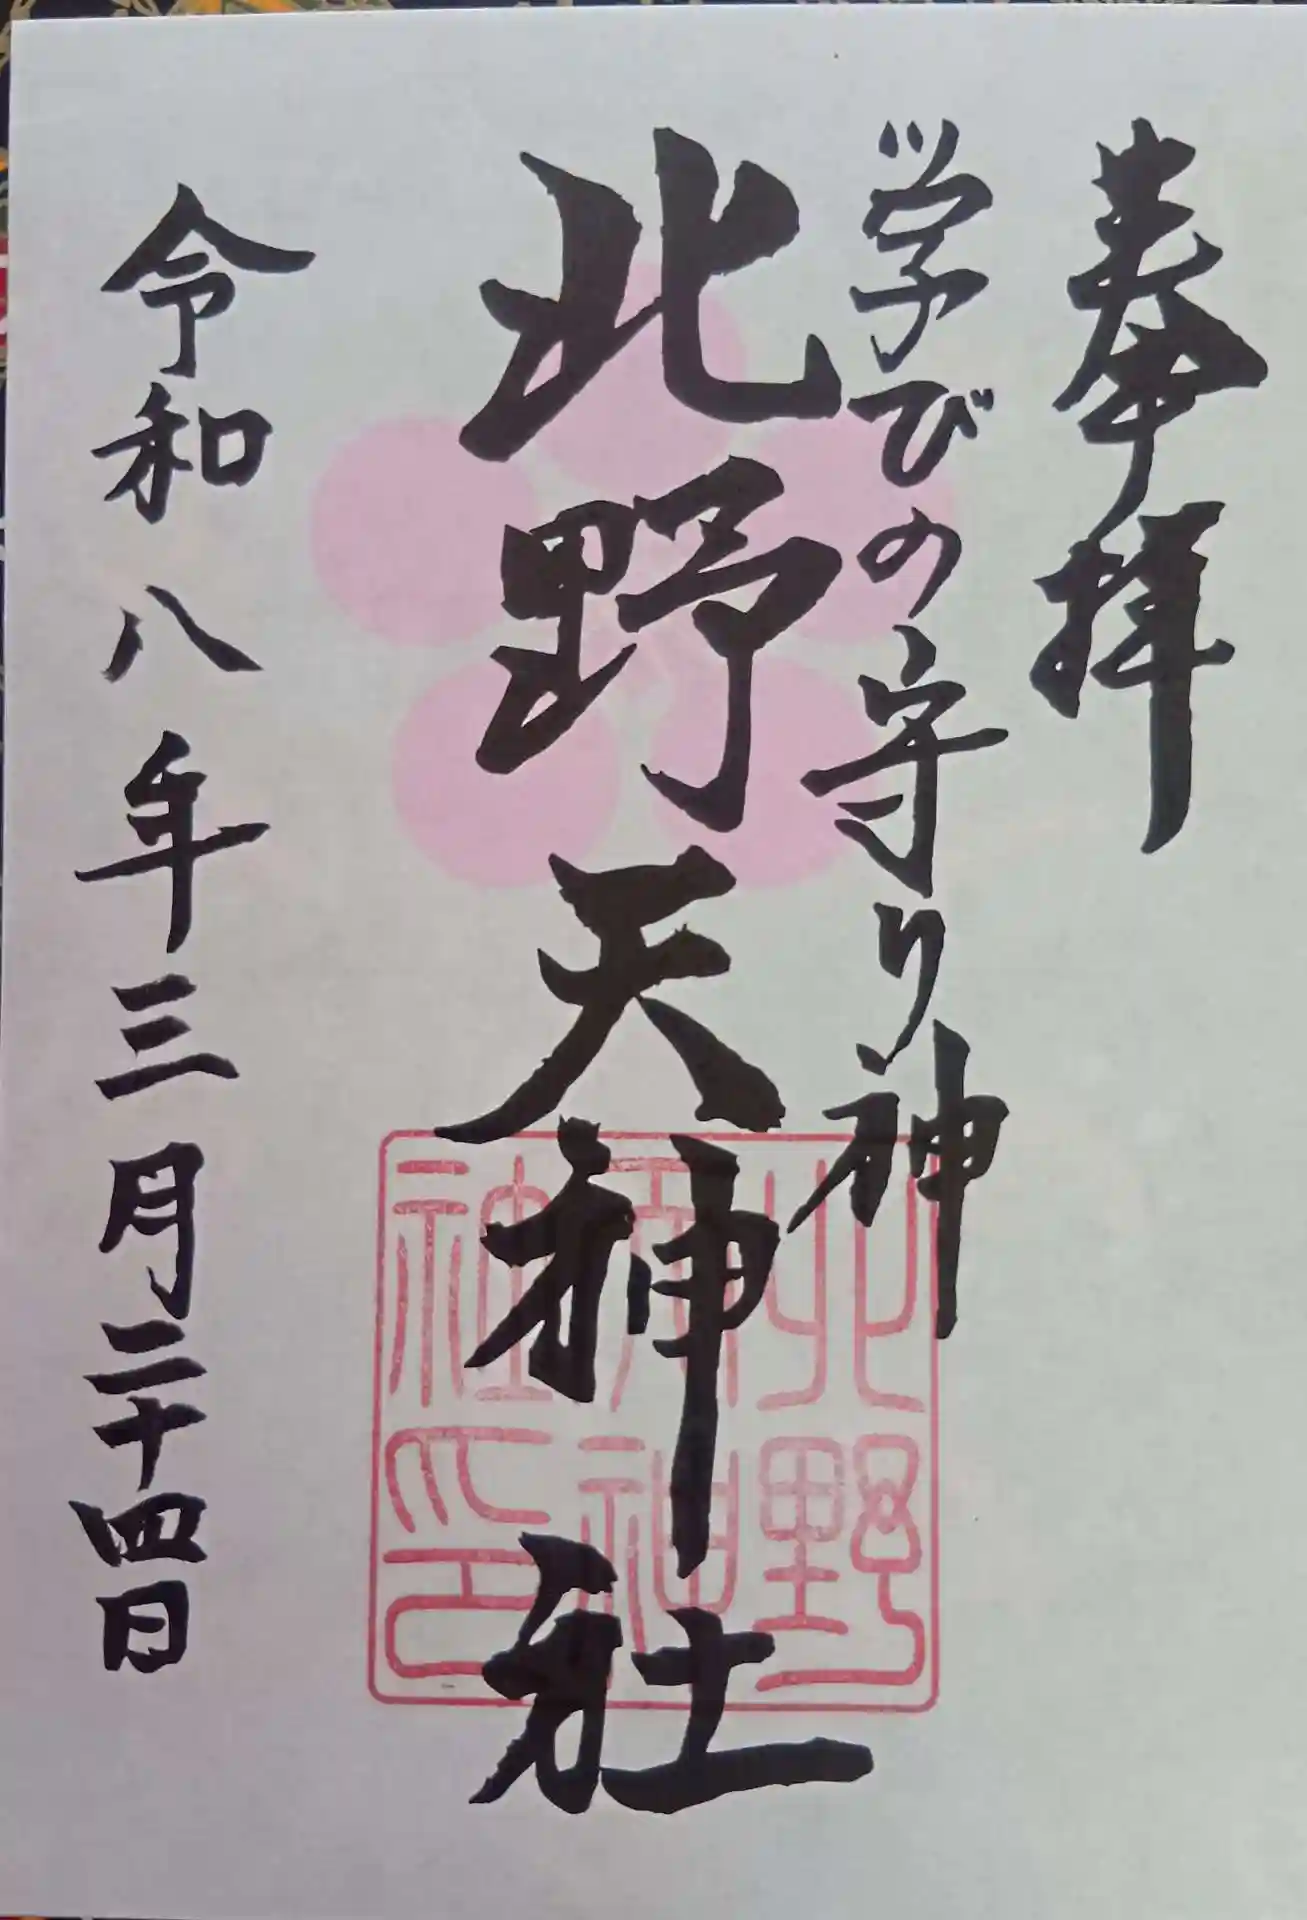 奉拝
学びの守り神
北野天神社
令和八年三月二十四日
北野
天神
社印